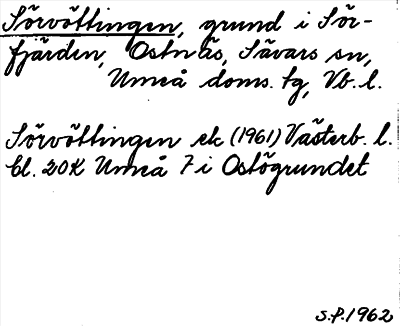 Sörvöttingen, grund i Sör-
fjärden, Ostnäs, Sävars sn,
Umeå doms. tg, Vb. l.
Sörvöttingen ek (1961) Västerb. l.
bl. 20K Umeå 7 i Ostögrundet
S.P. 1962